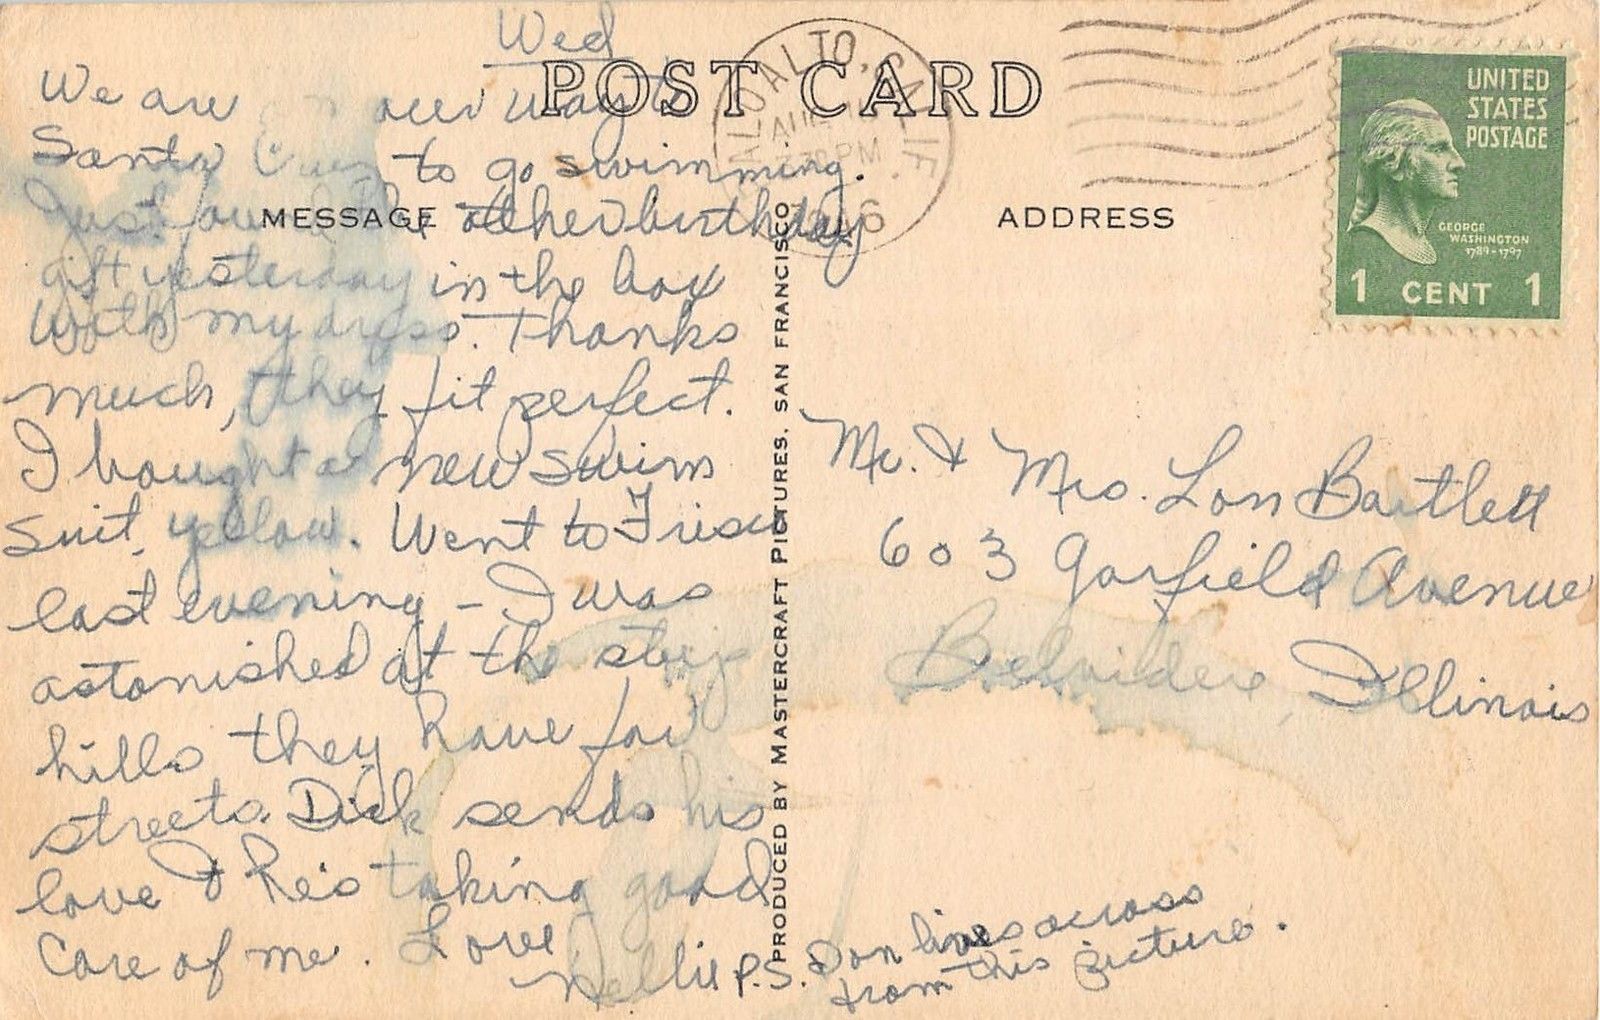 Wed
POST CARD
We are on our way to
Santa Cruz to go swimming.
Just found the other birthday
gift yesterday in the box
with my dress. Thanks
much, they fit perfect.
I bought a new swim
suit, yellow. Went to Frisco
last evening - I was
astonished at the steep
hills they have for
streets. Dick sends his
love & he's taking good
care of me. Love
Nellie
P.S. Don lives across
from this picture.
MESSAGE
ADDRESS
PRODUCED BY MASTERCRAFT PICTURES, SAN FRANCISCO
PALO ALTO, CALIF.
AUG
PM
UNITED
STATES
POSTAGE
GEORGE
WASHINGTON
1789-1797
1 CENT 1
Mr. & Mrs. Lon Bartlett
603 Garfield Avenue
Belvidere Illinois